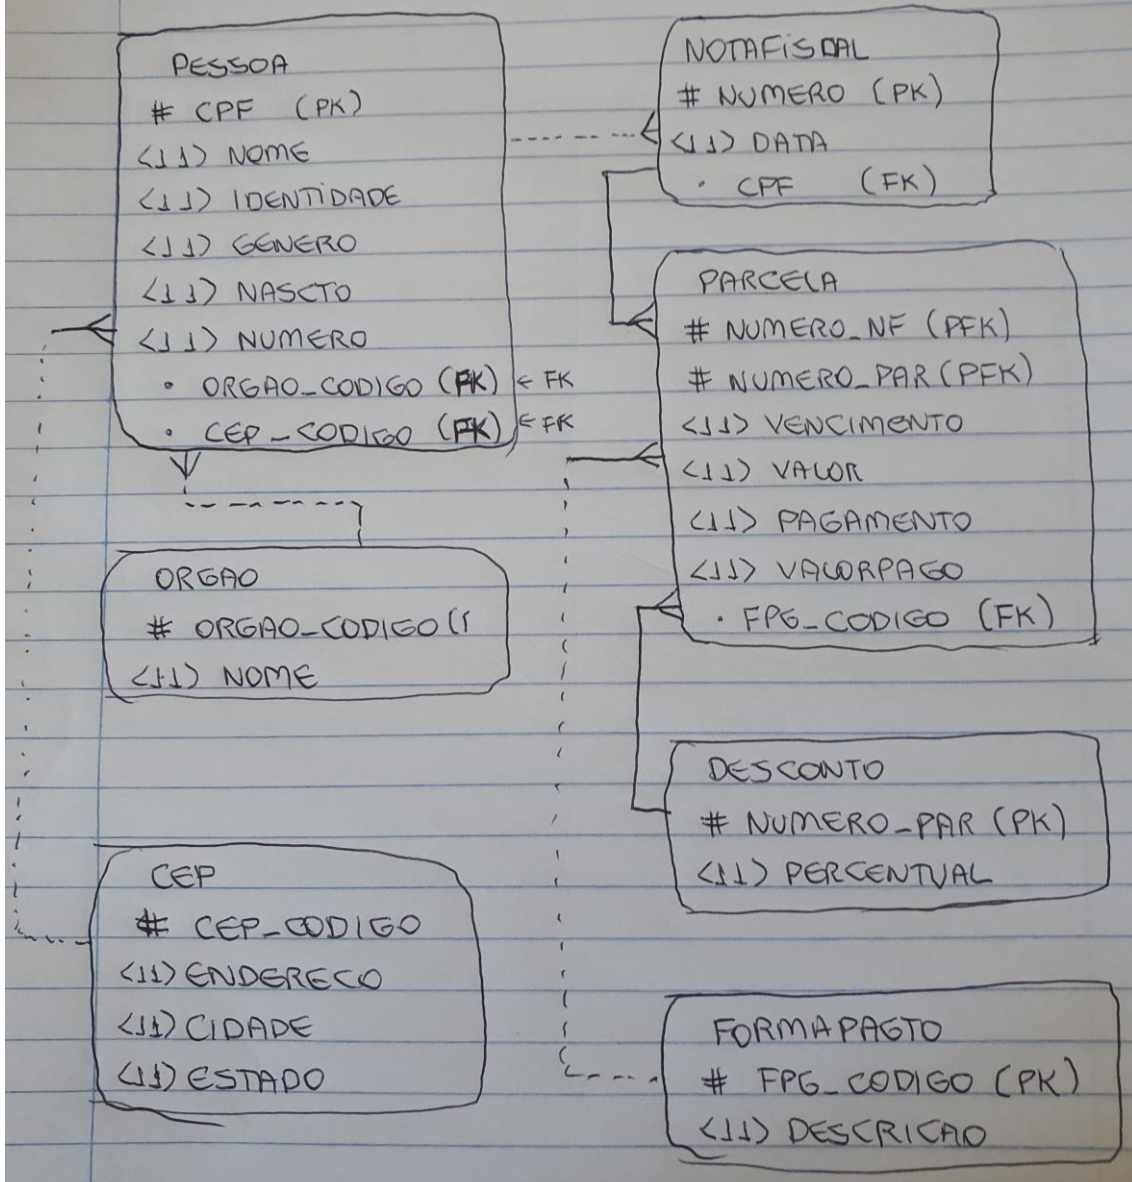 PESSOA
# CPF (PK)
<11> NOME
<11> IDENTIDADE
<11> GENERO
<11> NASCTO
<11> NUMERO
• ORGAO_CODIGO (FK) ← FK
• CEP_CODIGO (FK) ← FK
ORGAO
# ORGAO_CODIGO (
<11> NOME
CEP
# CEP_CODIGO
<11> ENDERECO
<11> CIDADE
<11> ESTADO
NOTAFISCAL
# NUMERO (PK)
<11> DATA
• CPF (FK)
PARCELA
# NUMERO_NF (PFK)
# NUMERO_PAR (PFK)
<11> VENCIMENTO
<11> VALOR
<11> PAGAMENTO
<11> VALORPAGO
• FPG_CODIGO (FK)
DESCONTO
# NUMERO_PAR (PK)
<11> PERCENTUAL
FORMAPAGTO
# FPG_CODIGO (PK)
<11> DESCRICAO